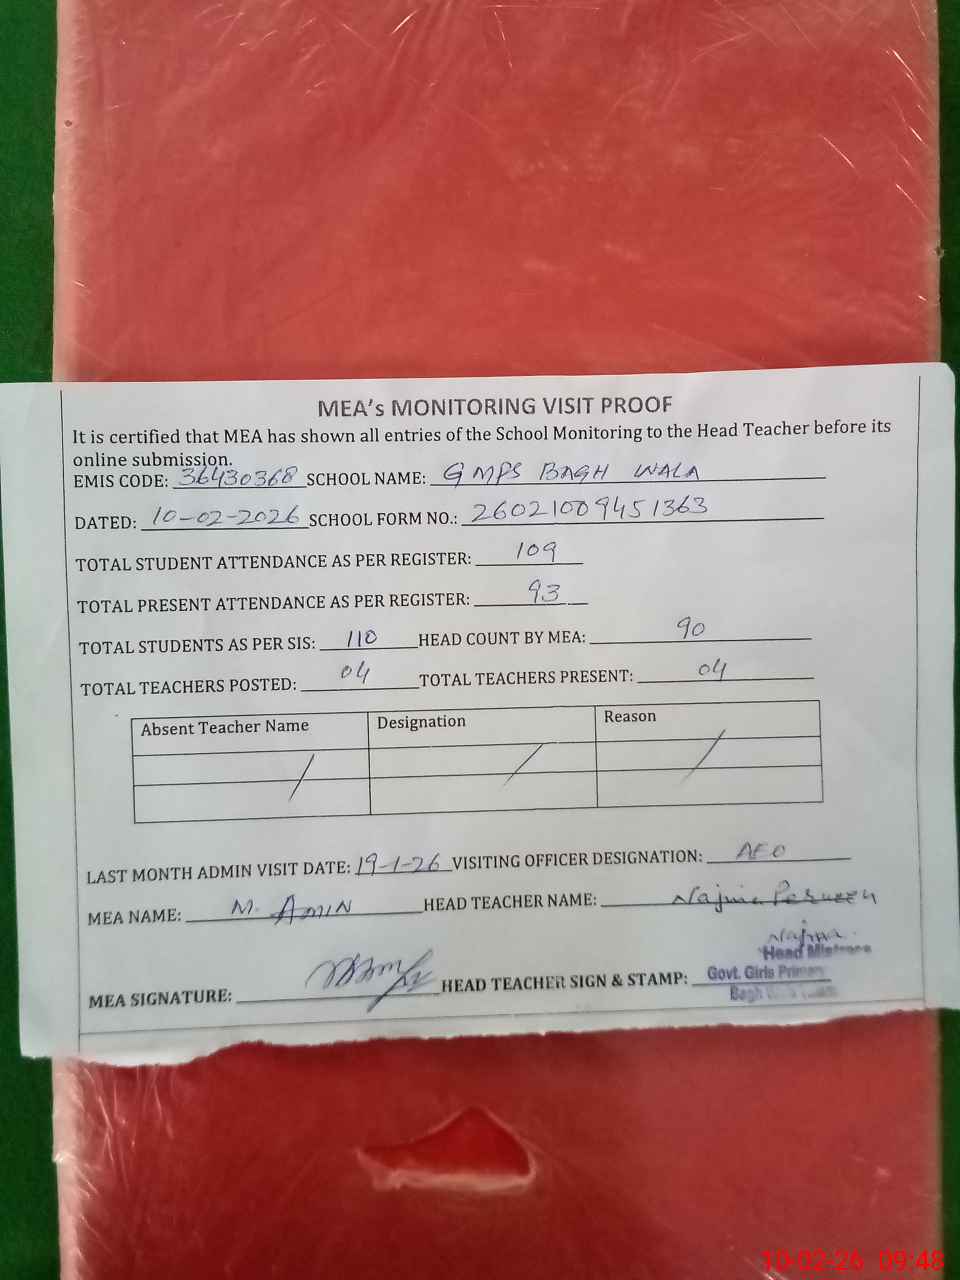 MEA's MONITORING VISIT PROOF
It is certified that MEA has shown all entries of the School Monitoring to the Head Teacher before its
online submission.
EMIS CODE: 36430368 SCHOOL NAME: GMPS BAGH WALA
DATED: 10-02-2026 SCHOOL FORM NO.: 26021009451363
TOTAL STUDENT ATTENDANCE AS PER REGISTER: 109
TOTAL PRESENT ATTENDANCE AS PER REGISTER: 93
TOTAL STUDENTS AS PER SIS: 110 HEAD COUNT BY MEA: 90
TOTAL TEACHERS POSTED: 04 TOTAL TEACHERS PRESENT: 04
Absent Teacher Name Designation Reason
LAST MONTH ADMIN VISIT DATE: 19-1-26 VISITING OFFICER DESIGNATION: AEO
MEA NAME: M. AMIN HEAD TEACHER NAME: Najma Perveen
Najma
Head Mistress
MEA SIGNATURE: HEAD TEACHER SIGN & STAMP: Govt. Girls Primary
Bagh
10-02-26 09:48